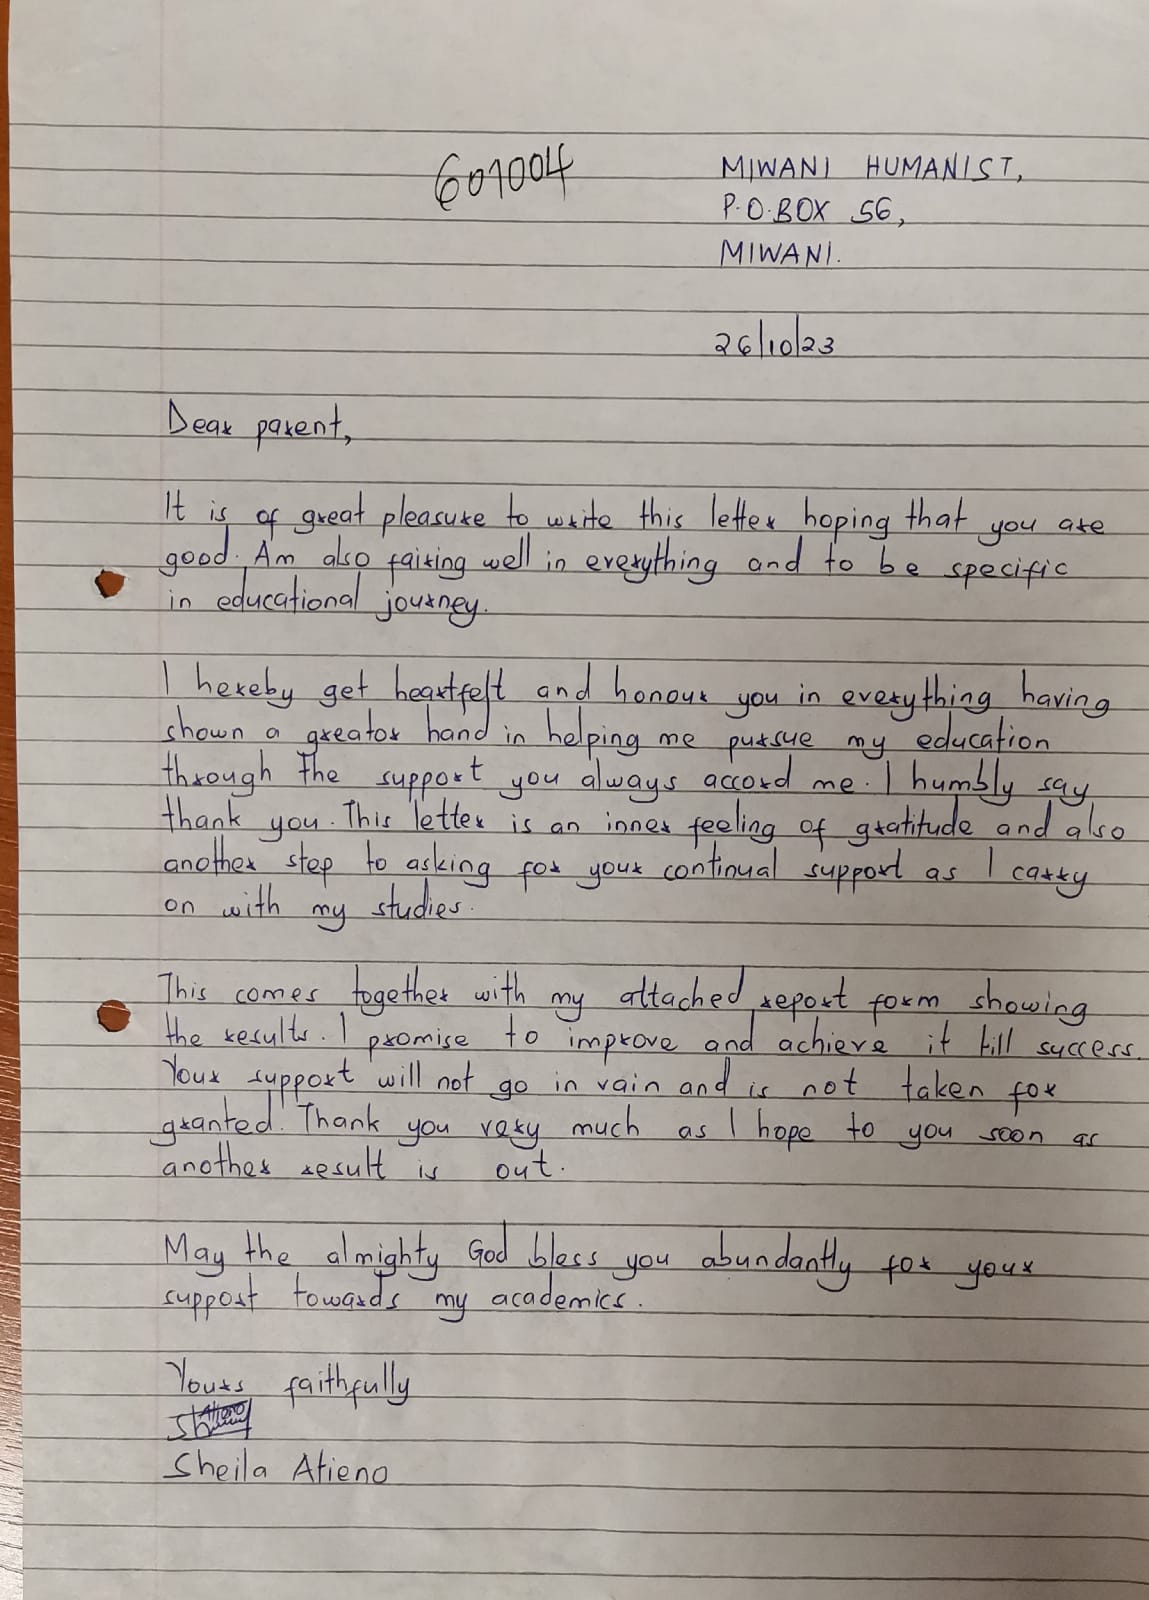 601004
MIWANI HUMANIST,
P.O.BOX 56,
MIWANI.
26/10/23
Dear parent,
It is of great pleasure to write this letter hoping that you are
good. Am also fairing well in everything and to be specific
in educational journey.
I hereby get heartfelt and honour you in everything having
shown a greator hand in helping me pursue my education
through the support you always accord me. I humbly say
thank you. This letter is an inner feeling of gratitude and also
another step to asking for your continual support as I carry
on with my studies.
This comes together with my attached report form showing
the results. I promise to improve and achieve it till success.
Your support will not go in vain and is not taken for
granted. Thank you very much as I hope to you soon as
another result is out.
May the almighty God bless you abundantly for your
support towards my academics.
Yours faithfully
Sheila Atieno